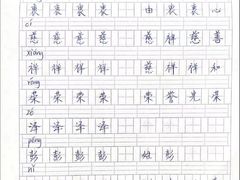 衷 衷 衷 衷 由 衷 衷 心
cí
慈 慈 慈 慈 慈 祥 慈 善
xiáng
祥 祥 祥 祥 慈 祥 祥 和
róng
荣 荣 荣 荣 荣 誉 光 荣
zé
泽 泽 泽 泽
péng
彭 彭 彭 彭 姓 彭
nǐ